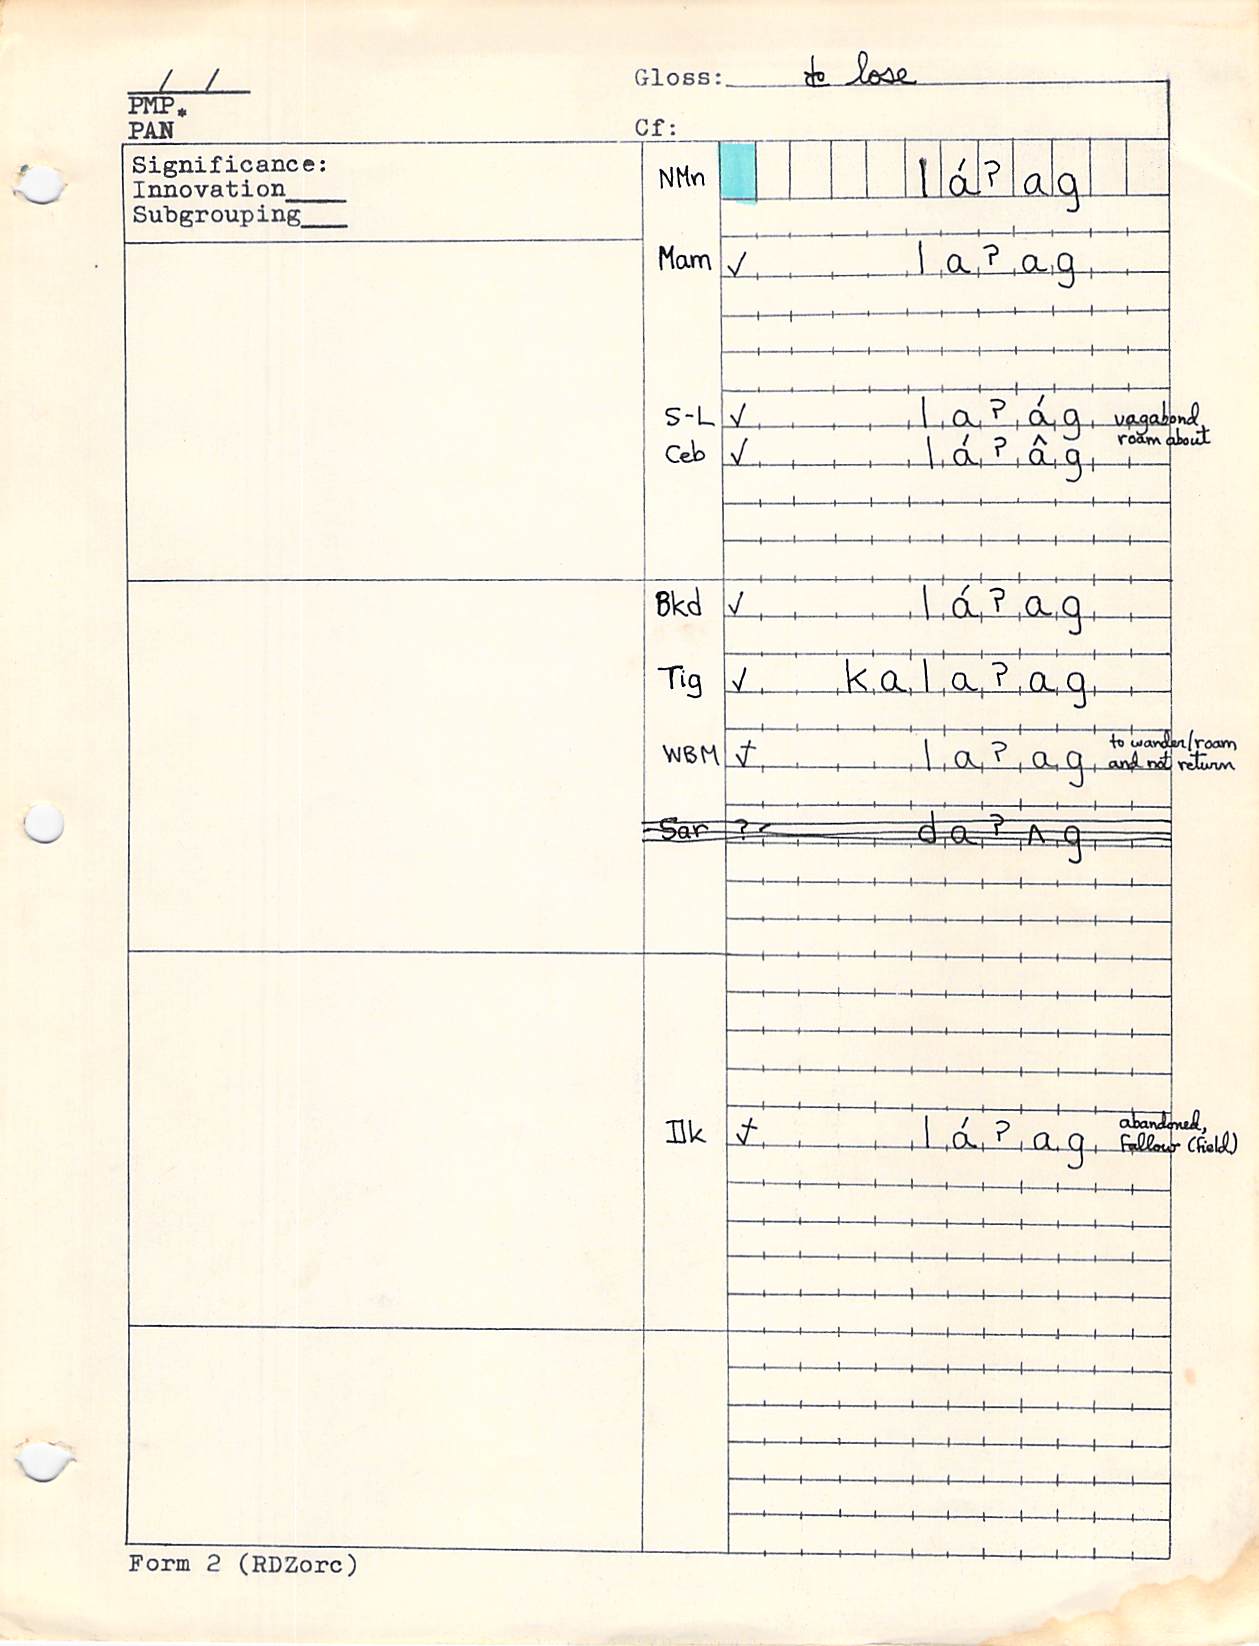 / /
Gloss: to lose
PMP*
PAN
Cf:
Significance:
Innovation
Subgrouping
NMn lá?ag
Mam ✓ la?ag
S-L ✓ la?ág vagabond,
roam about
Ceb ✓ lá?âg
Bkd ✓ lá?ag
Tig ✓ kala?ag
WBM † la?ag to wander/roam
and not return
Sar ?✓ da?ʌg
Ilk † lá?ag abandoned,
fallow (field)
Form 2 (RDZorc)